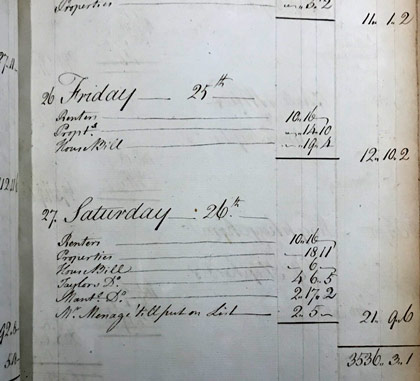 Properties
11 " 1 " 2
26 Friday — 25th
Renters 10 " 16 "
Propts. " 14 " 10
House Bill " 19 " 4
12 " 10 " 2
27. Saturday : 26th.
Renters 10 " 16
Properties 18 " 11
House Bill " 6 "
Taylors Do. 4 " 6 " 5
Mant. Do. 2 " 17 " 2
Mr. Menage till put on List 2 " 5 "
21 " 9 " 6
3536 " 3 " 1